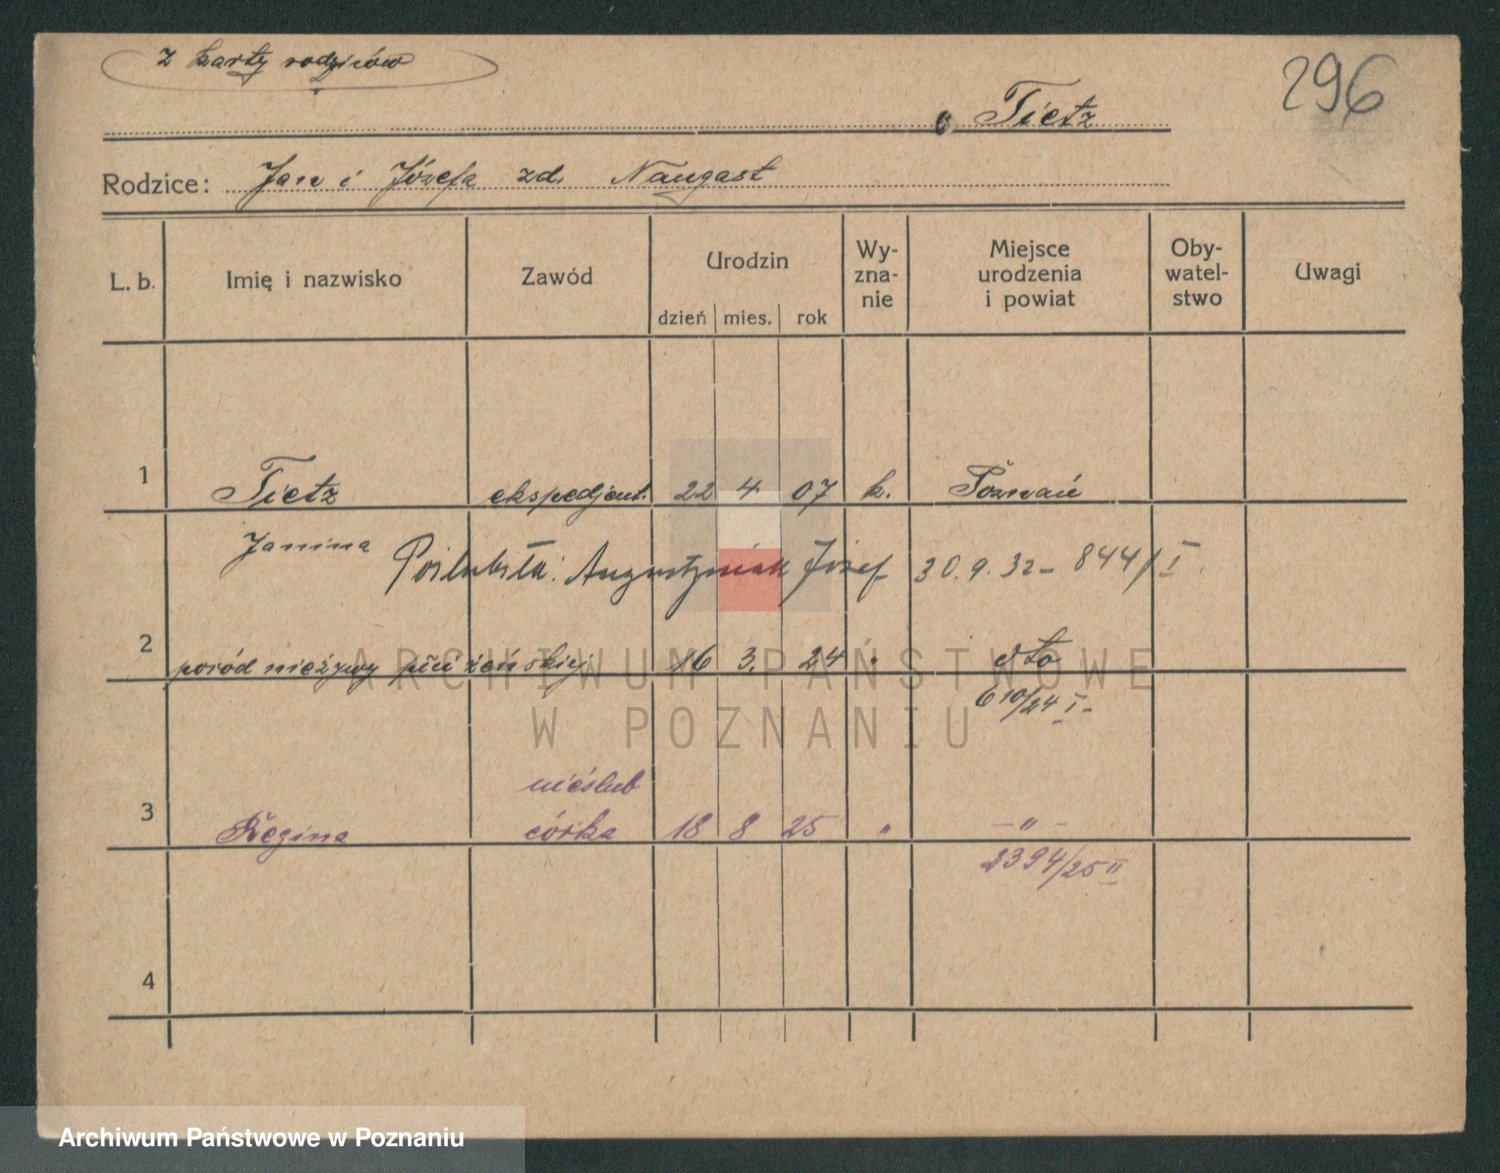 z karty rodziców
296
Tietz
Rodzice: Jan i Józefa zd. Naugast
L. b. Imię i nazwisko Zawód Urodzin dzień mies. rok Wy-zna-nie Miejsce urodzenia i powiat Oby-watel-stwo Uwagi
1 Tietz ekspedjent. 22 4 07 k. Poznań
Janina Poślubiła: Augustyniak Józef 30.9.32 - 844/I
2 poród nieżywy płci żeńskiej 16 3. 24 " dto
610/24 I -
nieślub
3 Regina córka 18 8 25 " - " -
2394/25 II
4
ARCHIWUM PAŃSTWOWE
W POZNANIU
Archiwum Państwowe w Poznaniu